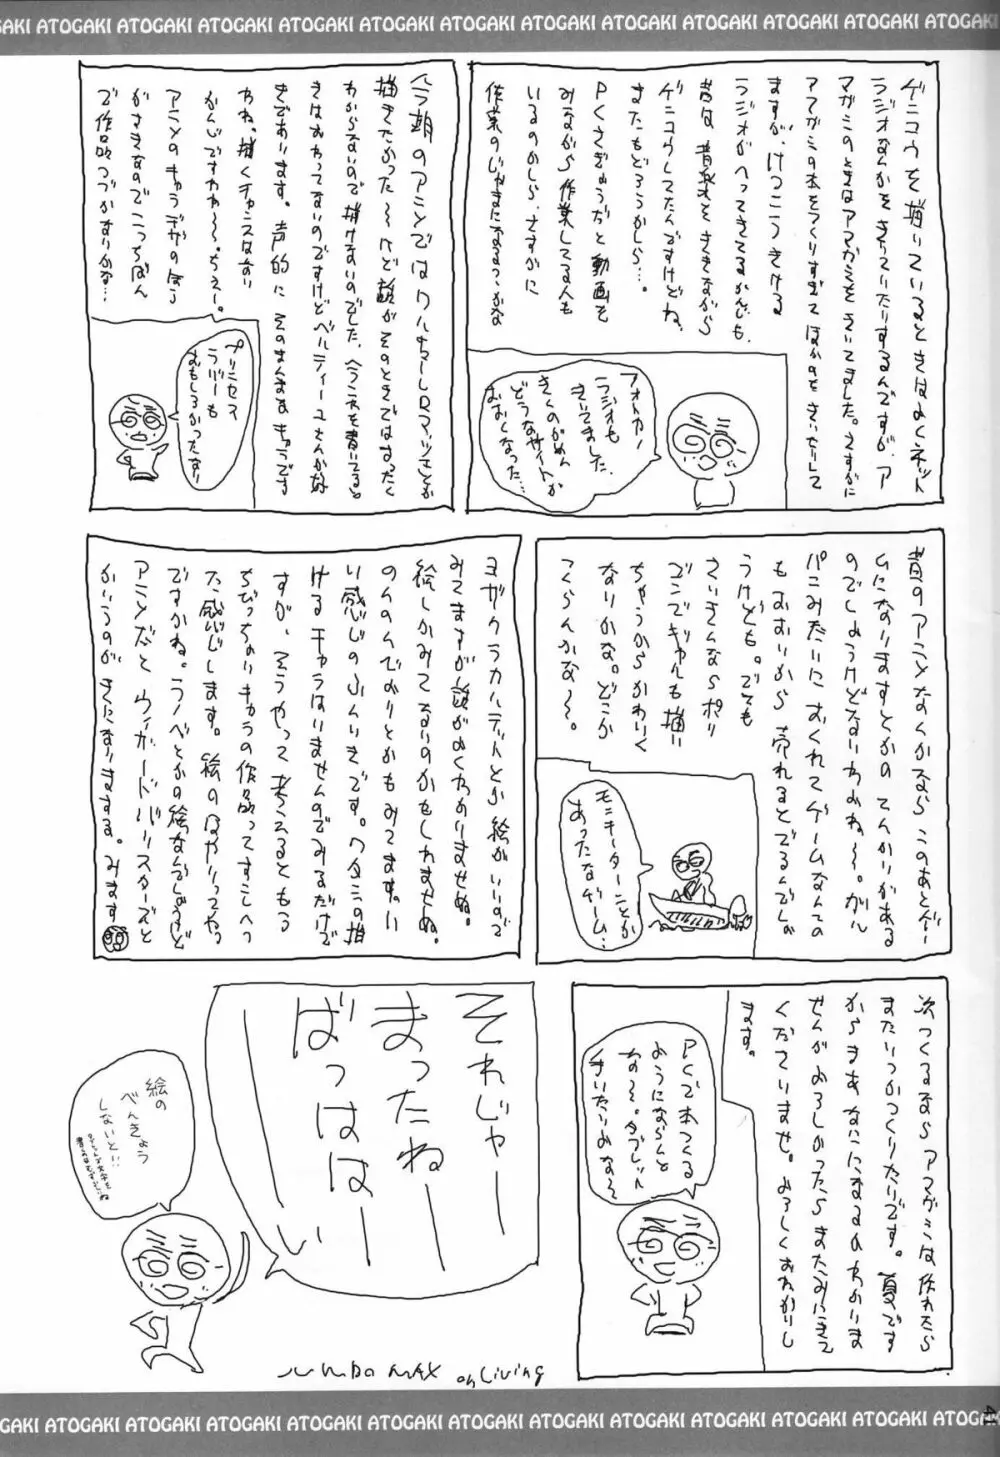 ATOGAKI ATOGAKI ATOGAKI ATOGAKI ATOGAKI ATOGAKI ATOGAKI ATOGAKI ATOGAKI
ゲンコウを描いているときはよくネット
ラジオなんかをきいていたりするんですが、ア
マガミのときはアマガミをきいてました。さすがに
アマガミの本をつくりすぎてほかのをきいたりして
ますが、けっこうきける
ラジオがへってきてるかんじも、
昔は音楽をききながら
ゲンコウしてたんですけどね、
またもどろうかしら…。
PCさぎょうだと動画を
みながら作業してる人も
いるのかしら、さすがに
作業のじゃまになるっつかな
フォトカノ
ラジオも
きいてました。
きくのがめん
どうなサイトが
おおくなった…
今期のアニメでは
描きたかった〜けど
わからないので描けないのでした、
きはおわってないのですけどベルティーユさんが好
きであります。声的にそのまんまなキャラです
わね。描くチャンスはない
かんじですわね〜。ちぇー。
アニメのキャラデザのほう
がすきなのでこっちばん
で作品つづかないかな…
プリンセス
ラバーも
おもしろかったなり
昔のアニメなんかなら このあとゲー
ムになりますとかの てんかいがある
のでしょうけどないわよね〜。ガル
パンみたいにおくれてゲームなんての
もおそいから 売れるとでるんでしょ
うけども。でも
さいきんなら
ゲンでギャルも描い
ちゃうからかわいく
なりかな。どこか
つくらんかな〜。
モンキーターンとか
あったなゲーム…
ヨザクラカルテットとか 絵がいいので
みてますが話がよくわかりませぬ。
絵しかみてないのかもしれませぬ。
のんのんびよりとかもみてます。い
い感じのふんいきです。ワタシの描
けるキャラはいませんのでみるだけで
すが、そうやって考えるともう
ちびっちゃいキャラの作品ってすこしへっ
た感じします。絵のはやりってやつ
ですかね。ラノベとかの絵なんでしょうけど
アニメだと ウィザードバリスターズと
かいうのが きになりまする。みます
次つくるなら アマガミは 作れたら
またいつかつくりたいです。夏です
からまあ なにになるのかわかりま
せんがよろしかったら またみにきて
くださいませ。よろしくおねがいし
ます。
PCで本つくる
ようにならんと
な〜。タブレット
手いたいよな〜
それじゃー
まったねー
ばっはは
ーい
絵の
べんきょう
しないと…
on Living
ATOGAKI ATOGAKI ATOGAKI ATOGAKI ATOGAKI ATOGAKI ATOGAKI ATOGAKI ATOGAKI
41